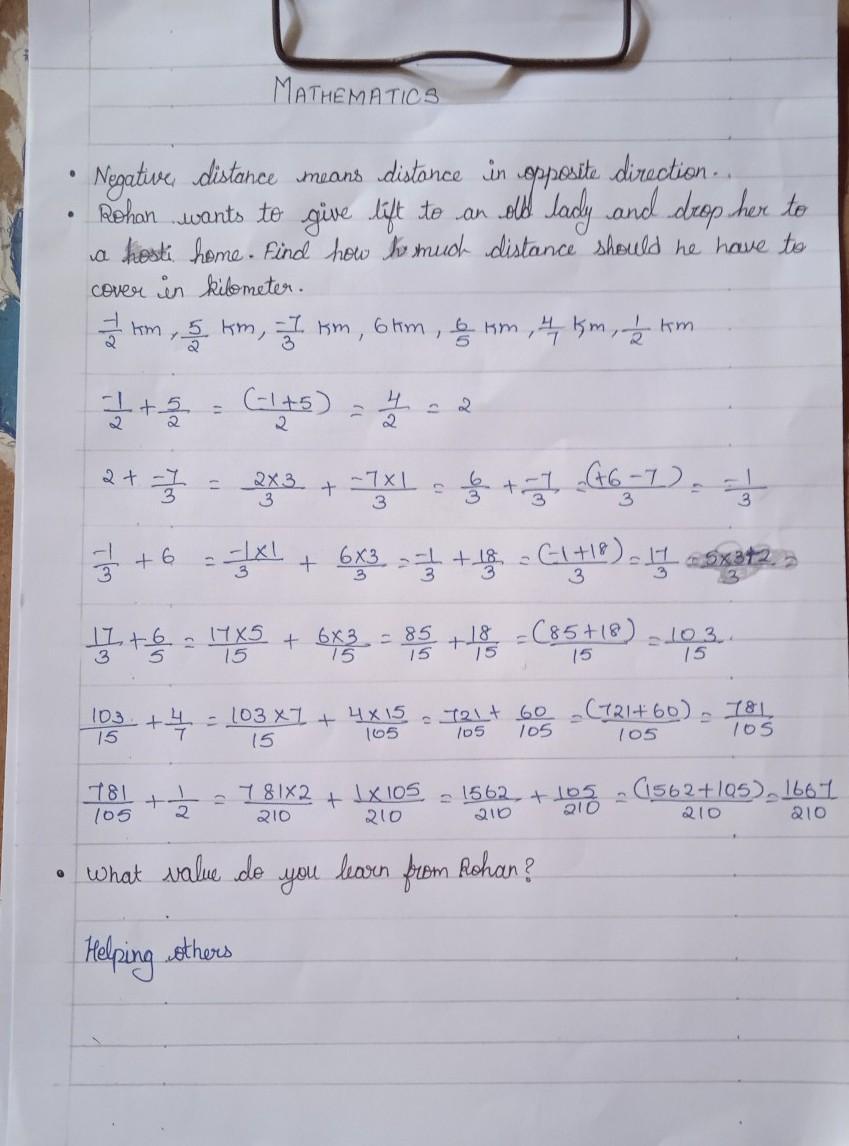 MATHEMATICS
• Negative distance means distance in opposite direction.
• Rohan wants to give lift to an old lady and drop her to
a hosti home. Find how much distance should he have to
cover in kilometer.
-1/2 km, 5/2 km, -7/3 km, 6 km, 6/5 km, 4/7 km, 1/2 km
-1/2 + 5/2 = (-1+5)/2 = 4/2 = 2
2 + -7/3 = 2×3/3 + -7×1/3 = 6/3 + -7/3 = (+6-7)/3 = -1/3
-1/3 + 6 = -1×1/3 + 6×3/3 = -1/3 + 18/3 = (-1+18)/3 = 17/3 = 5×3+2/3 =
17/3 + 6/5 = 17×5/15 + 6×3/15 = 85/15 + 18/15 = (85+18)/15 = 103/15
103/15 + 4/7 = 103×7/15 + 4×15/105 = 721/105 + 60/105 = (721+60)/105 = 781/105
781/105 + 1/2 = 781×2/210 + 1×105/210 = 1562/210 + 105/210 = (1562+105)/210 = 1667/210
• What value do you learn from Rohan?
Helping others